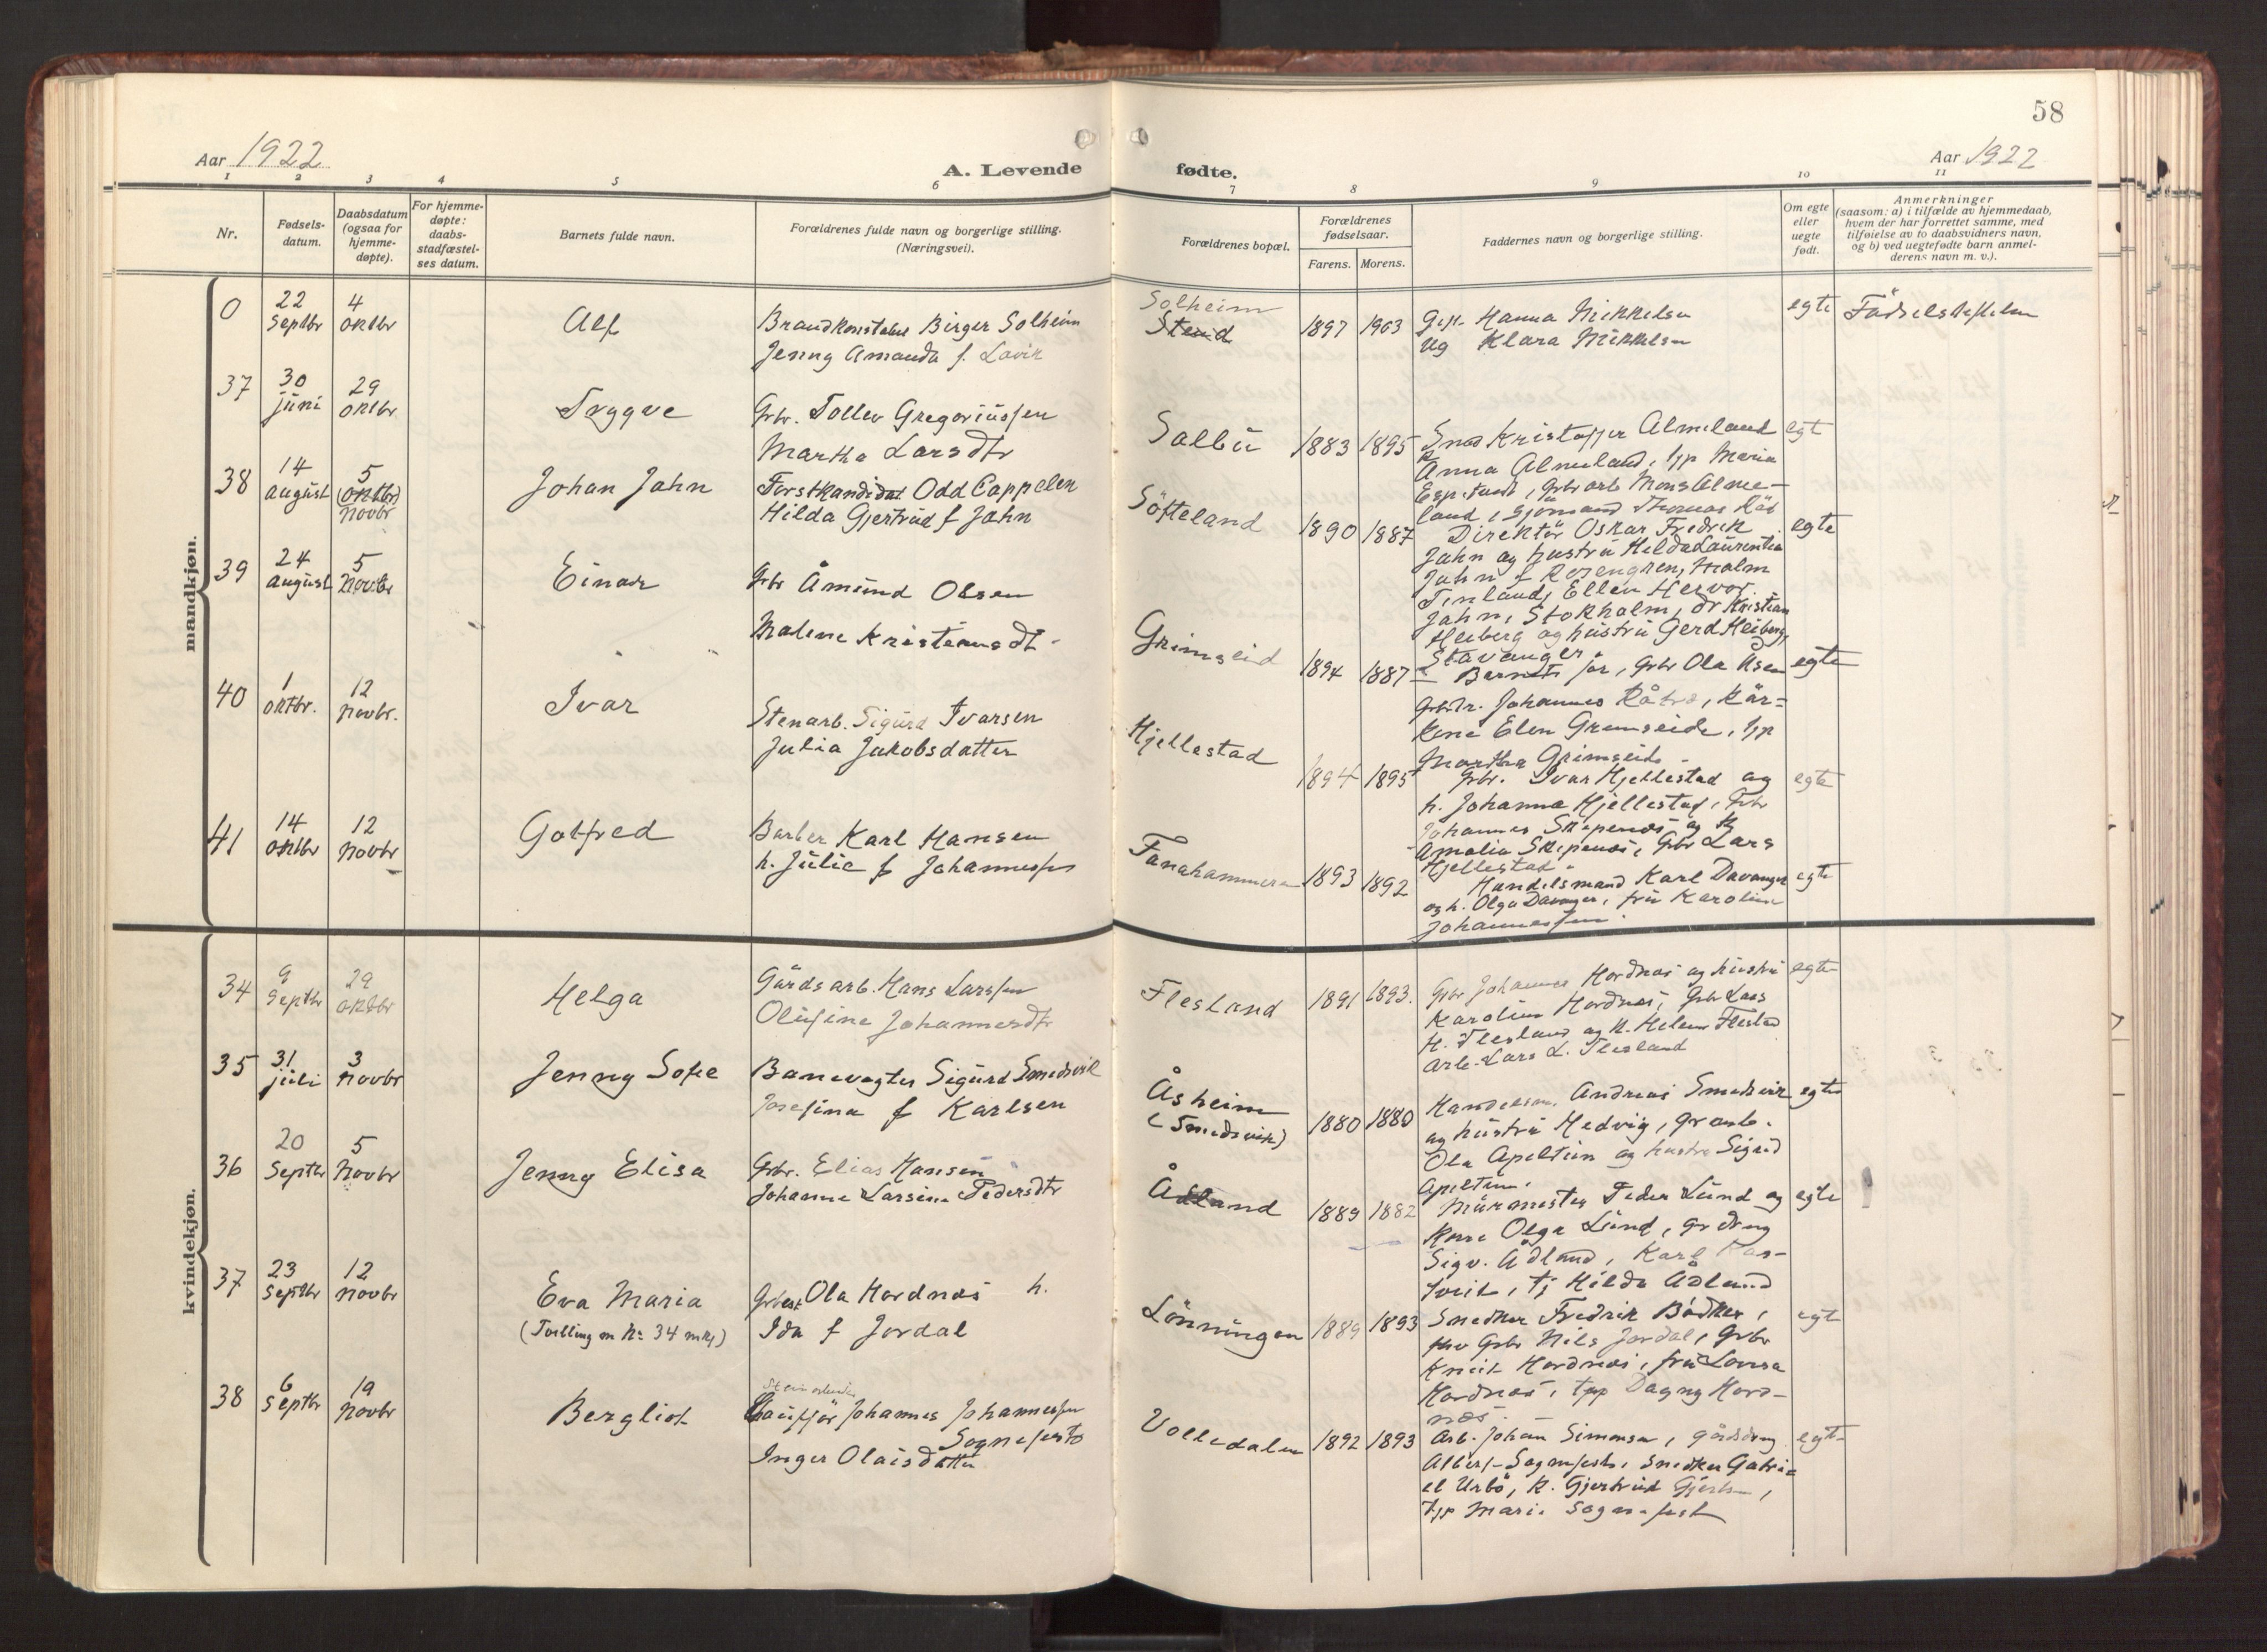 58
Aar 1922
A. Levende
fødte.
Aar 1922
1 2 3 4 5 6 7 8 9 10 11
Nr.
Fødsels-
datum.
Daabsdatum
(ogsaa for
hjemme-
døpte).
For hjemme-
døpte:
daabs-
stadfæstel-
ses datum.
Barnets fulde navn.
Forældrenes fulde navn og borgerlige stilling.
(Næringsvei).
Forældrenes bopæl.
Forældrenes
fødselsaar.
Farens. Morens.
Faddernes navn og borgerlige stilling.
Om egte
eller
uegte
født.
Anmerkninger
(saasom: a) i tilfælde av hjemmedaab,
hvem der har forrettet samme, med
tilføielse av to daabsvidners navn,
og b) ved uegtefødte barn anmel-
derens navn m. v.).
mandkjøn.
0
22
Septbr
4
oktbr
Alf
Brandkonstabel Birger Solheim
Jenny Amanda f. Lavik
Solheim
Stend
1897 1903
Hanna Mikkelsen
Ug Klara Mikkelsen
egte
37
30
juni
29
oktbr
Trygve
Grbr. Tollev Gregoriussen
Martha Larsdtr
Salbu
1883 1895
Kristoffer Almeland
Anna Almeland, tjp Maria
Mons Alme-
land, Sjømand Thomas
egt
38
14
august
5
(oktbr)
Novbr
Johan Jahn
Forstkandidat Odd Cappelen
Hilda Gjertrud f Jahn
Söfteland
1890 1887
Direktör Oskar Fredrik
Jahn og hustru Hilda Laurentia
Jahn f Rosengren, Malm
Finland, Ellen Hervor
Jahn, Stokholm, dr Kristian
Heiberg og hustru Gerd Heiberg,
Stavanger.
egte
39
24
august
5
Novbr
Einar
Grbr Åmund Olsen
Malene Kristensdt
Grimseid
1894 1887
Barnets far, Grbr Ola Åsen
Johannes Råtræ, Kår-
kone Elen Grimseide, tjp
Martha Grimseide
egte
40
1
oktbr.
12
Novbr.
Ivar
Stenarb. Sigurd Ivarsen
Julia Jakobsdatter
Hjellestad
1894 1895
Grbr. Ivar Hjellestad og
h. Johanna Hjellestad, Grbr
Johannes Skipenes og h
Amalia Skipenes, Grbr Lars
Hjellestad
egte
41
14
oktbr
12
Novbr
Gotfred
Barber Karl Hansen
h. Julie f Johannessen
Fanahammeren
1893 1892
Handelsmand Karl Davanger
og h. Olga Davanger, fru Karoline
Johannessen.
egte
kvindekjøn.
34
9
Septbr
29
oktbr
Helga
Gårdsarb. Hans Larssen
Olufine Johannesdtr
Flesland
1891 1893.
Grbr Johannes Hordnes og hustru
Karoline Hordnes, Grbr Lars
H. Flesland og K. Helene Flesland
arb. Lars L. Flesland
egte
35
31
juli
3
Novbr
Jenny Sofie
Banevogter Sigurd Smedsvik
Josefina f Karlsen
Åsheim
(Smedsvik)
1880 1880
Handelsm. Andreas Smedsvik
og hustru Hedvig, grarb.
Ola Apeltun og hustru Sigrid
Apeltun.
egte
36
20
Septbr
5
Novbr
Jenny Elisa
Grbr. Elias Hansen
Johanne Larsine Pedersdtr
Ådland
1889 1882
Murmester Peder Lund og
Kone Olga Lund, Gr dreng
Sigv. Ådland, Karl
tveit, tj Hilda Ådland
egte
37
23
Septbr
12
Novbr
Eva Maria
(Tvilling m Nr 34 mkj)
Ola Hordnes h.
Ida f Jordal
Lönningen
1889 1893
Snedker Fredrik Bödker,
Grbr Nils Jordal, Grbr
Knut Hordnes, fru Lovisa
Hordnes, tpp Dagny Hord-
nes.
egte
38
6
Septbr
19
Novbr
Bergliot
Stenarbeider
Chauffør Johannes Johannessen
Sognefest
Inger Olaisdatter
Volledalen
1892 1893
Arb. Johan Simonsen, gårdsdreng
Albert Sognefest, Snedker Gabri-
el Urbö, K. Gjertrud
tjp Marie Sognefest
egte